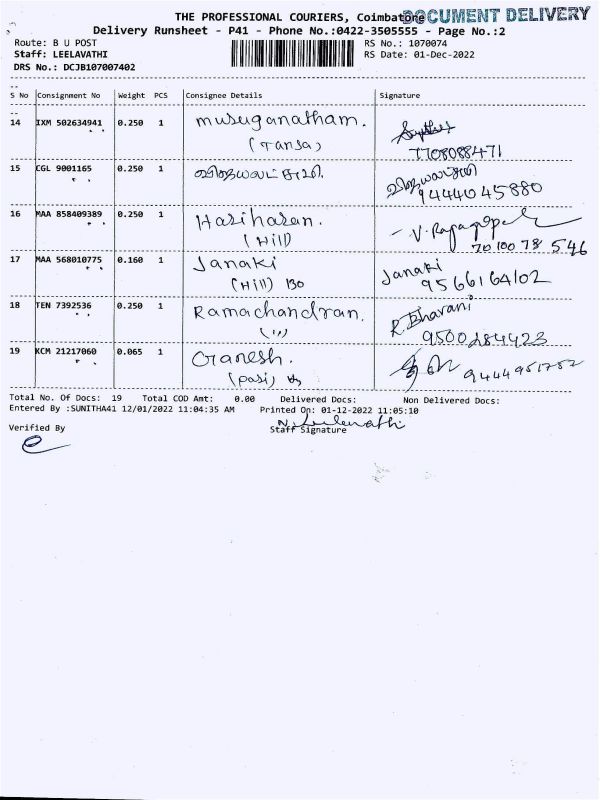 THE PROFESSIONAL COURIERS, Coimbatore
DOCUMENT DELIVERY
Delivery Runsheet - P41 - Phone No.:0422-3505555 - Page No.:2
Route: B U POST RS No.: 1070074
Staff: LEELAVATHI RS Date: 01-Dec-2022
DRS No.: DCJB107007402
S No Consignment No Weight PCS Consignee Details Signature
14 IXM 502634941 0.250 1 Musuganatham.
(Tansa)
7708088471
15 CGL 9001165 0.250 1
9444045880
16 MAA 858409389 0.250 1 Hariharan. V. Rajagopal
(Hill) 70 100 78 546
17 MAA 568010775 0.160 1 Janaki Janaki
(Hill) 130 9566164102
18 TEN 7392536 0.250 1 Ramachandran. R Bharani
(11) 9500284423
19 KCM 21217060 0.065 1 Ganesh.
(pasi) 9444951752
Total No. Of Docs: 19 Total COD Amt: 0.00 Delivered Docs: Non Delivered Docs:
Entered By :SUNITHA41 12/01/2022 11:04:35 AM Printed On: 01-12-2022 11:05:10
N. Leelavathi
Verified By Staff Signature